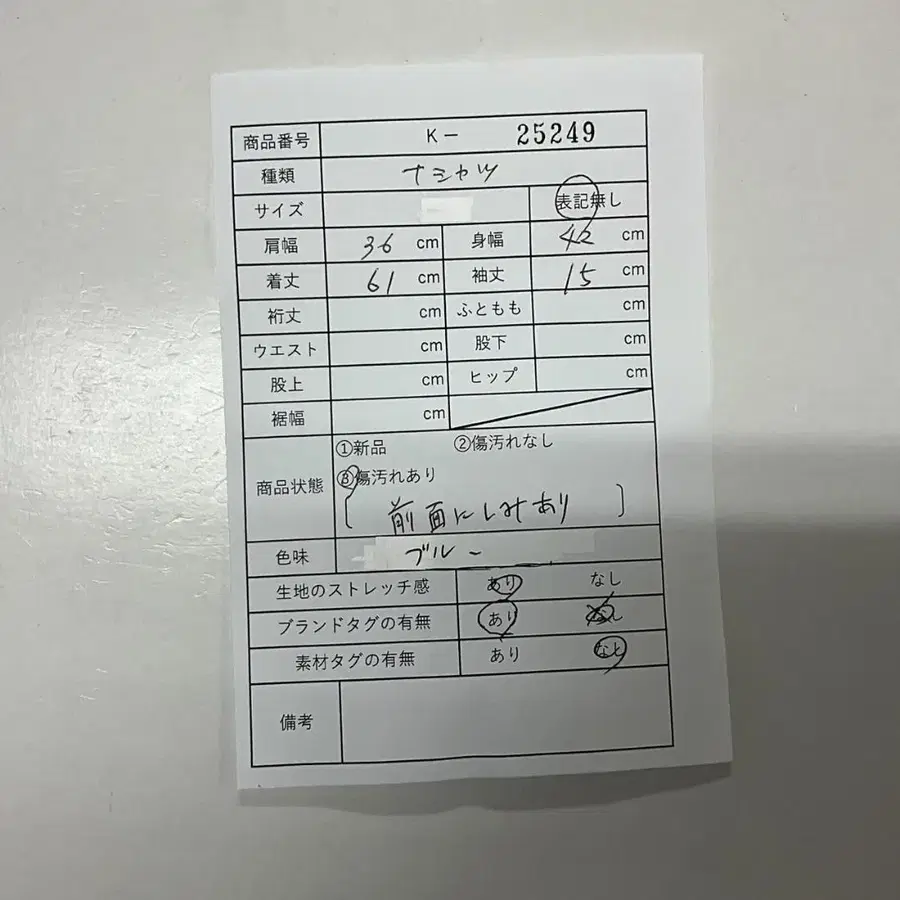 商品番号 K- 25249
種類 Tシャツ
サイズ 表記無し
肩幅 36 cm 身幅 42 cm
着丈 61 cm 袖丈 15 cm
裄丈 cm ふともも cm
ウエスト cm 股下 cm
股上 cm ヒップ cm
裾幅 cm
商品状態 ①新品 ②傷汚れなし
③傷汚れあり
[前面にしみあり]
色味 ブルー
生地のストレッチ感 あり なし
ブランドタグの有無 あり なし
素材タグの有無 あり なし
備考